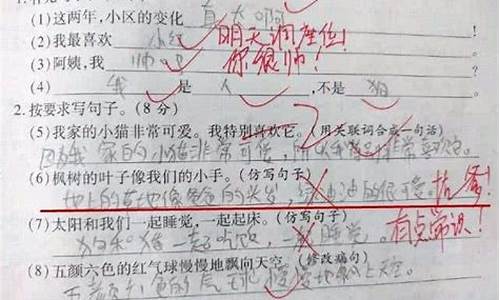 (1)这两年,小区的变化 真大啊
(2)我最喜欢 小红 明天调座位!
(3)阿姨,我 帅吗 你很帅!
(4) 我 是 人 ,不是 狗
2.按要求写句子。(8分)
(5)我家的小猫非常可爱。我特别喜欢它。(用关联词合成一句话)
因为我家的小猫非常可爱,所以我特别非常喜欢它。
(6)枫树的叶子像我们的小手。(仿写句子)
地上的草地像爸爸的头发,绿油油的很可爱。 抗爹!
(7)太阳和我们一起睡觉,一起起床。(仿写句子)
狗和猪一起吃饭,一起睡觉。 有点常识!
(8)五颜六色的红气球慢慢地飘向天空。(修改病句)
五颜六色的气球慢慢地飘上天空。